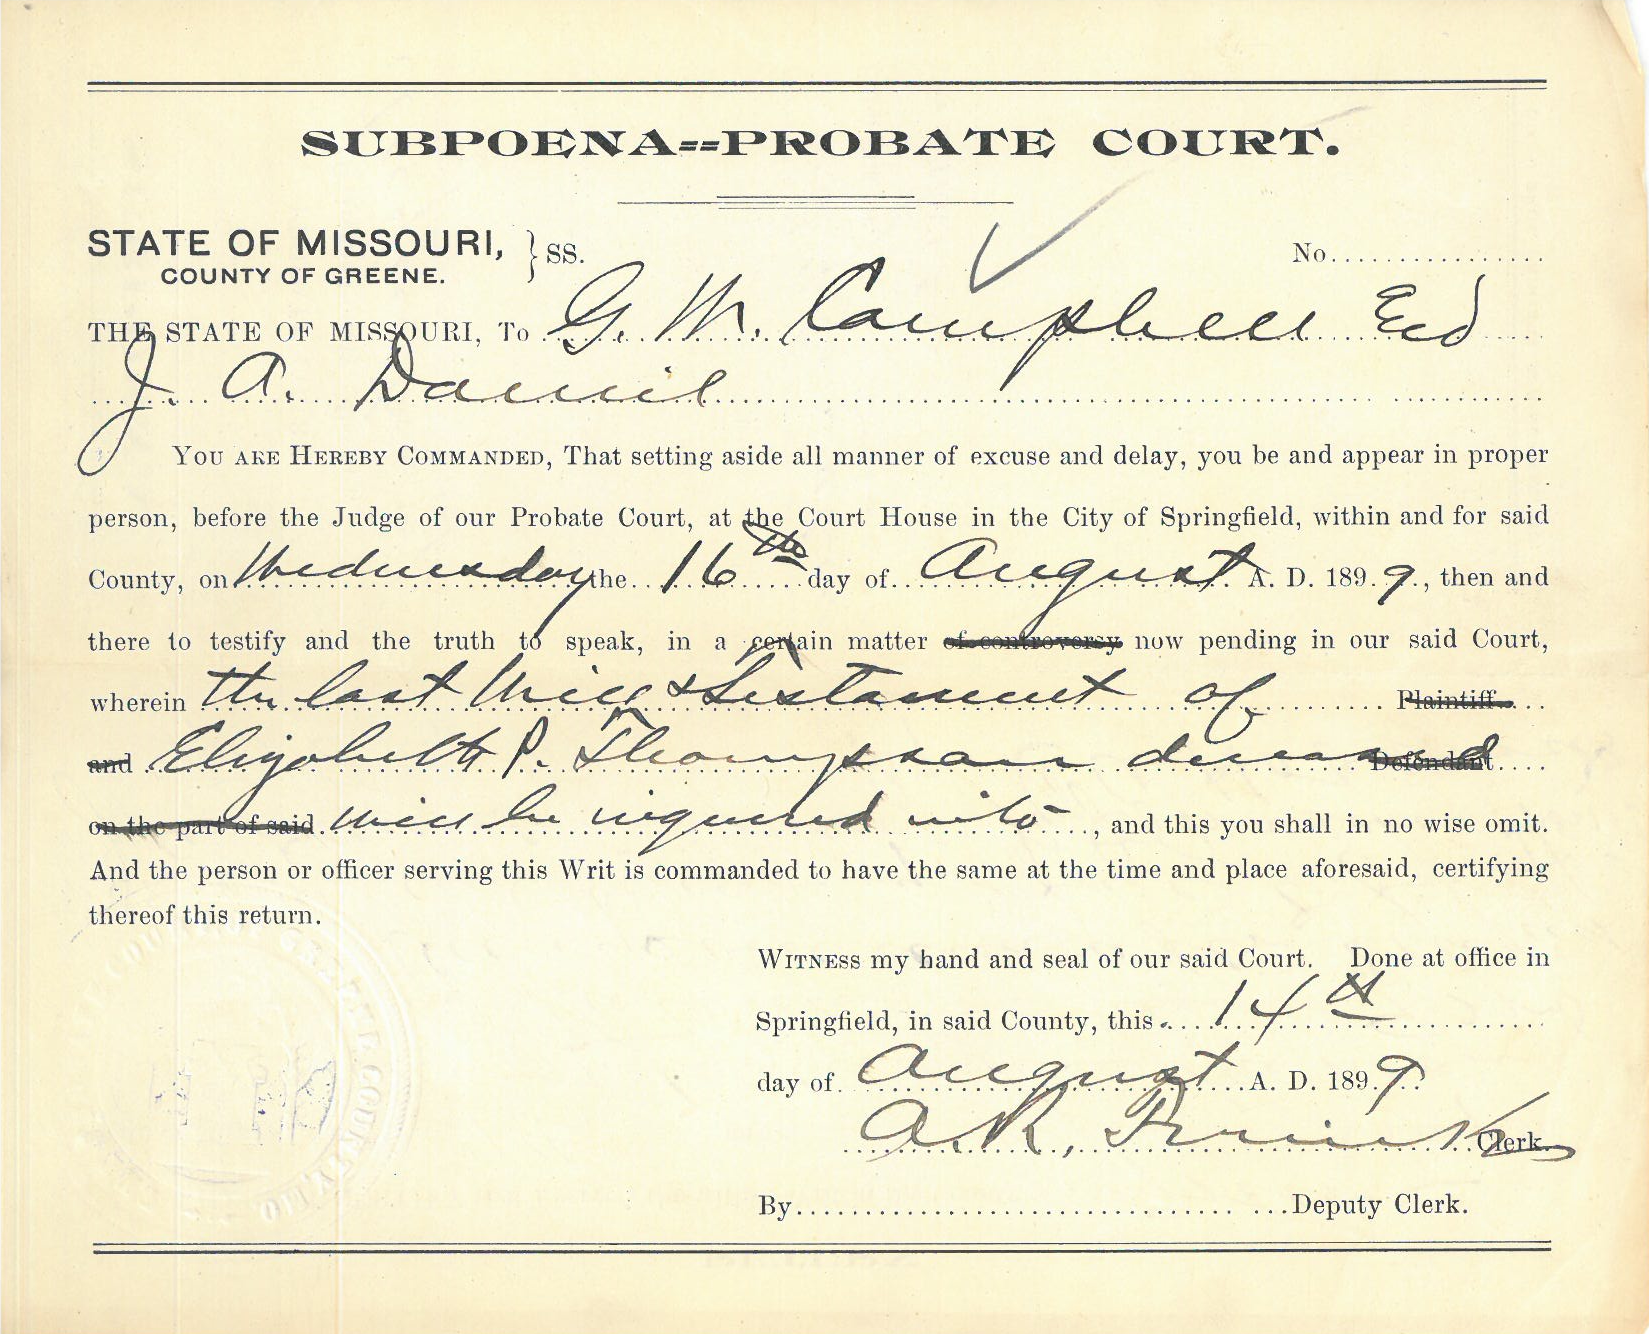 SUBPOENA==PROBATE COURT.
STATE OF MISSOURI, } SS.
COUNTY OF GREENE.
No.
THE STATE OF MISSOURI, To G. M. Campbell
J. A. Daniel
YOU ARE HEREBY COMMANDED, That setting aside all manner of excuse and delay, you be and appear in proper
person, before the Judge of our Probate Court, at the Court House in the City of Springfield, within and for said
County, on Wednesday the 16th day of August A. D. 1899, then and
there to testify and the truth to speak, in a certain matter of controversy now pending in our said Court,
wherein the last Will & Testament of Plaintiff
and Elizabeth P. Thompson deceased Defendant
on the part of said will be inquired into, and this you shall in no wise omit.
And the person or officer serving this Writ is commanded to have the same at the time and place aforesaid, certifying
thereof this return.
WITNESS my hand and seal of our said Court. Done at office in
Springfield, in said County, this 14th
day of August A. D. 1899
A. R. Clerk.
By Deputy Clerk.
GREENE COUNTY, MO